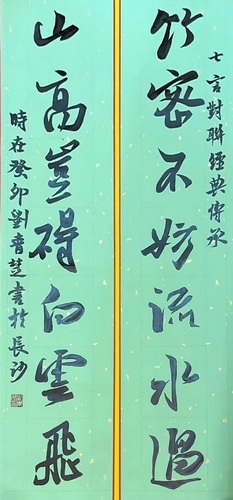 七言對聯經典傳承
竹密不妨流水過
山高豈碍白雲飛
時在癸卯劉香芝書於長沙